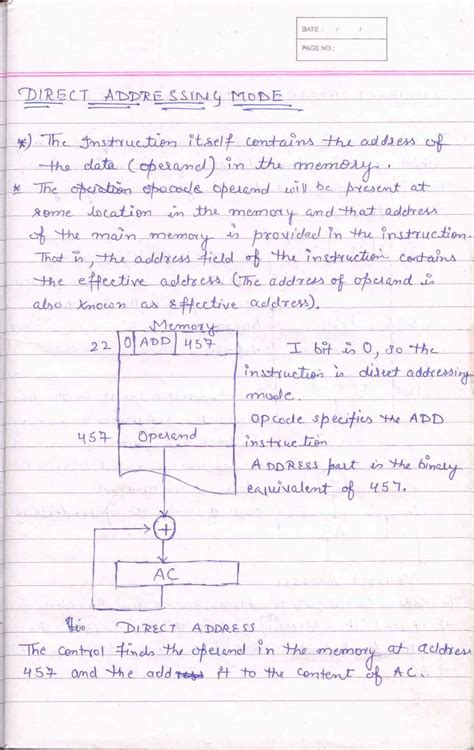 DATE : / /
PAGE NO.:
DIRECT ADDRESSING MODE
*) The Instruction itself contains the address of
the data (operand) in the memory.
* The operation opocode operand will be present at
some location in the memory and that address
of the main memory is provided in the instruction.
That is, the address field of the instruction contains
the effective address. (The address of operand is
also known as Effective address).
Memory
22 0 ADD 457
I bit is 0, so the
instruction is direct addressing
mode.
Opcode specifies the ADD
instruction
457 Operand
ADDRESS part is the binary
equivalent of 457.
+
AC
DIRECT ADDRESS
The control finds the operand in the memory at address
457 and the add it to the content of AC.